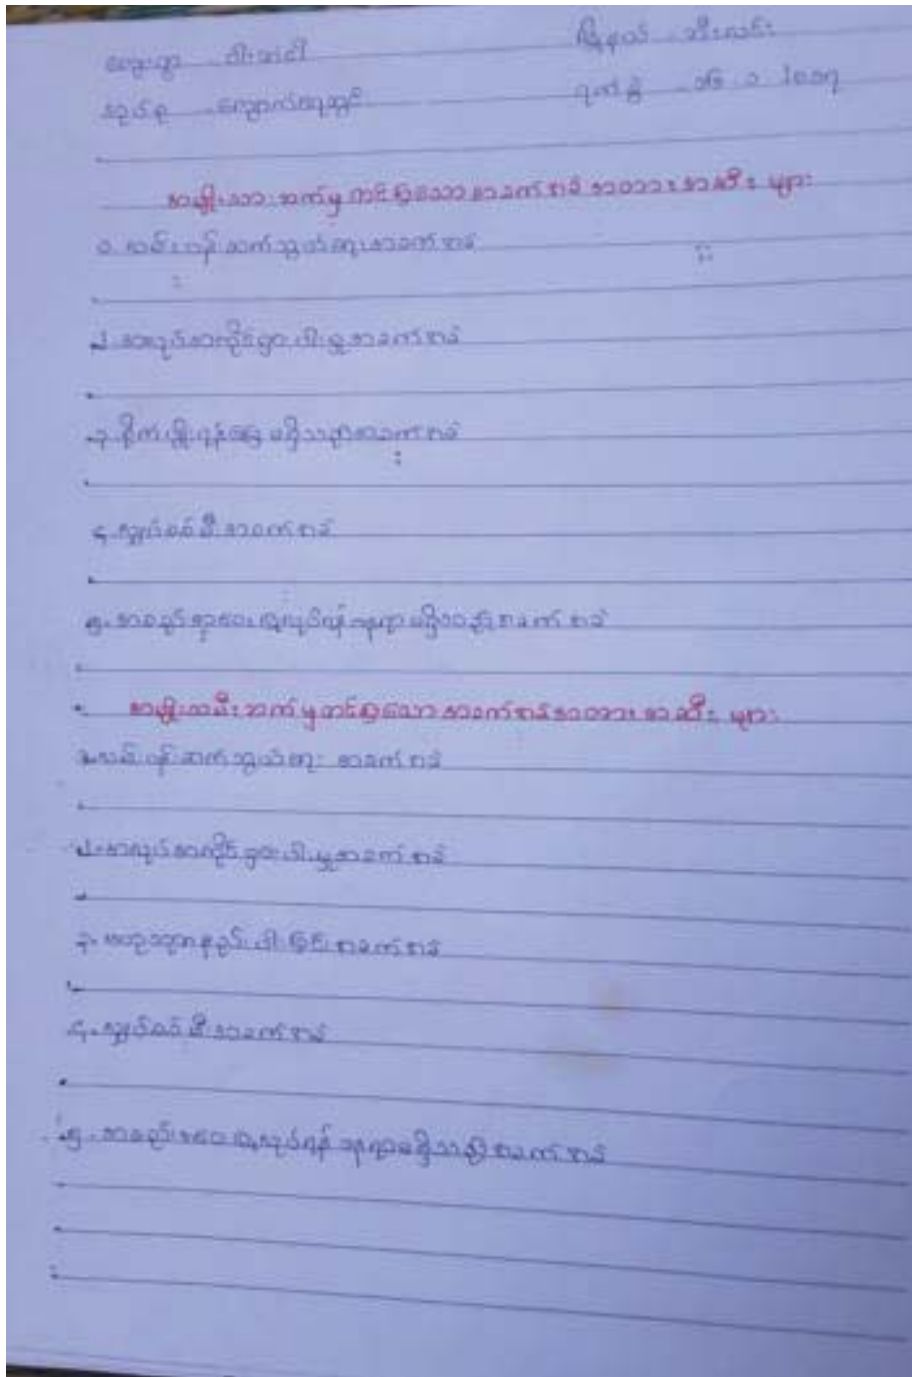 ကျေးရွာ ဝါးသင်ငါ မြို့နယ် သီးလင်း
အုပ်စု ကျောက်ရေတွင်း ရက်စွဲ ၁၆ ၁ ၂၀၁၇
အမျိုးသားဘက်မှ တင်ပြသော အခက်အခဲ အတားအဆီး များ
၁. လမ်းပန်းဆက်သွယ်ရေးအခက်အခဲ
၂. အလုပ်အကိုင်ရှားပါးမှုအခက်အခဲ
၃. စိုက်ပျိုးရန်မြေ မရှိသည့်အခက်အခဲ
၄. လျှပ်စစ်မီးအခက်အခဲ
၅. အစည်းအဝေးပြုလုပ်ရန် နေရာမရှိသည့်အခက်အခဲ
အမျိုးသမီးဘက်မှတင်ပြသော အခက်အခဲအတားအဆီး များ
၁. လမ်းပန်းဆက်သွယ်ရေး အခက်အခဲ
၂. အလုပ်အကိုင်ရှားပါးမှုအခက်အခဲ
၃. ဗဟုသုတနည်းပါးခြင်းအခက်အခဲ
၄. လျှပ်စစ်မီးအခက်အခဲ
၅. အစည်းအဝေးပြုလုပ်ရန် နေရာမရှိသည့်အခက်အခဲ